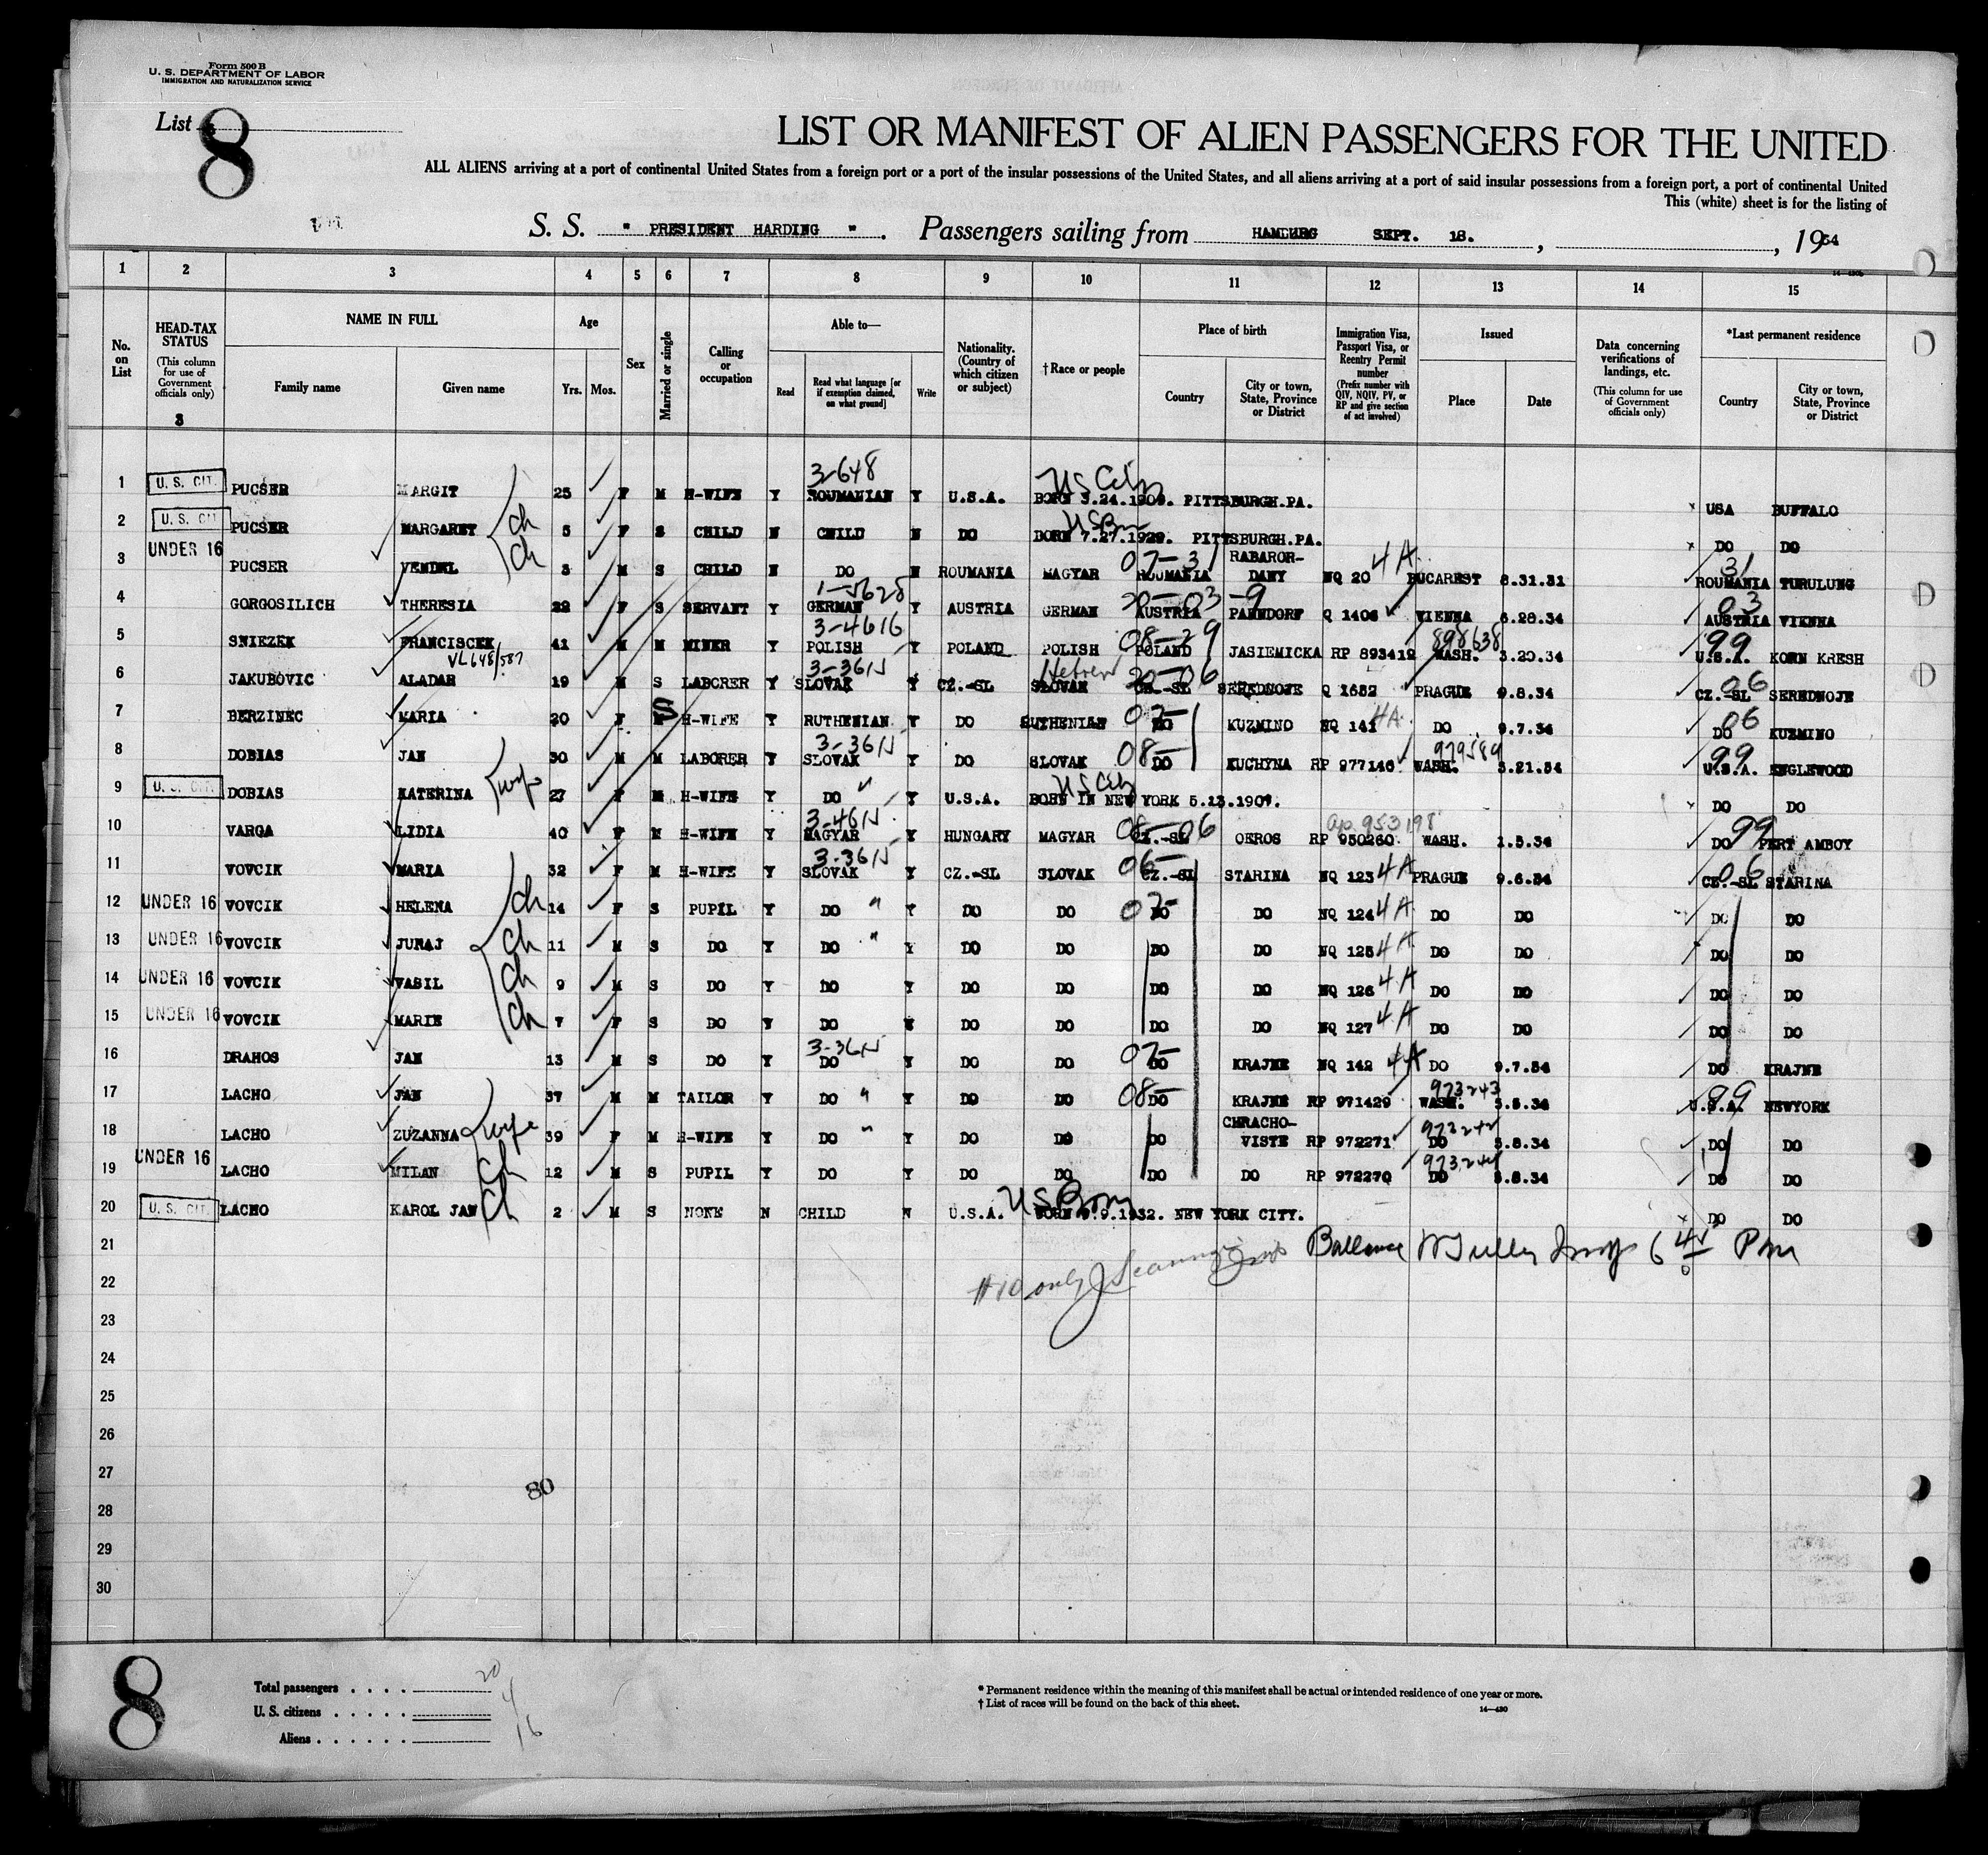 Form 500 B
U. S. DEPARTMENT OF LABOR
IMMIGRATION AND NATURALIZATION SERVICE
List 8
LIST OR MANIFEST OF ALIEN PASSENGERS FOR THE UNITED
ALL ALIENS arriving at a port of continental United States from a foreign port or a port of the insular possessions of the United States, and all aliens arriving at a port of said insular possessions from a foreign port, a port of continental United
This (white) sheet is for the listing of
S. S. " PRESIDENT HARDING ". Passengers sailing from HAMBURG SEPT. 18. , , 1934
14—430b
1 2 3 4 5 6 7 8 9 10 11 12 13 14 15
No. on List
HEAD-TAX STATUS (This column for use of Government officials only)
3
NAME IN FULL Family name Given name
Age Yrs. Mos.
Sex
Married or single
Calling or occupation
Able to— Read Read what language [or if exemption claimed, on what ground] Write
Nationality. (Country of which citizen or subject)
†Race or people
Place of birth Country City or town, State, Province or District
Immigration Visa, Passport Visa, or Reentry Permit number (Prefix number with QIV, NQIV, PV, or RP and give section of act involved)
Issued Place Date
Data concerning verifications of landings, etc. (This column for use of Government officials only)
*Last permanent residence Country City or town, State, Province or District
3-648 US City
1 U. S. CIT. PUCSER MARGIT 25 F M H-WIFE Y ROUMANIAN Y U.S.A. BORN 3.24.1909. PITTSBURGH.PA. USA BUFFALO
2 U. S. CIT PUCSER MARGARET ch 5 F S CHILD N CHILD N DO US Born BORN 7.27.1929. PITTSBURGH.PA. DO DO
3 UNDER 16 PUCSER VENDEL ch 3 M S CHILD N DO N ROUMANIA MAGYAR 07-31 ROUMANIA RABAROR-DANY NQ 20 4A BUCAREST 8.31.31 31 ROUMANIA TURULUNG
4 GORGOSILICH THERESIA 22 F S SERVANT Y 1-5628 GERMAN Y AUSTRIA GERMAN 20-03-9 AUSTRIA PARNDORF Q 1406 VIENNA 6.28.34 03 AUSTRIA VIENNA
5 SNIEZEK FRANCISCEK 41 M M MINER Y 3-4616 POLISH Y POLAND POLISH 08-29 POLAND JASIEMICKA RP 893419 898638 WASH. 3.20.34 99 U.S.A. KORN KRESH
VL 648/587
6 JAKUBOVIC ALADAR 19 M S LABORER Y 3-36N SLOVAK Y CZ.-SL Hebrew SLOVAK 20-06 CZ.-SL SEREDNOJE Q 1652 PRAGUE 9.8.34 06 CZ.-SL SEREDNOJE
7 BERZINEC MARIA 20 F S H-WIFE Y RUTHENIAN Y DO RUTHENIAN 07- DO KUZMINO NQ 141 4A DO 9.7.34 06 DO KUZMINO
8 DOBIAS JAN 30 M M LABORER Y 3-36N SLOVAK Y DO SLOVAK 08- DO KUCHYNA RP 977146 979589 WASH. 3.21.34 99 U.S.A. ENGLEWOOD
9 U. S. CIT. DOBIAS KATERINA wife 27 F M H-WIFE Y DO " Y U.S.A. US City BORN IN NEW YORK 5.13.1907. DO DO
10 VARGA LIDIA 40 F M H-WIFE Y 3-46N MAGYAR Y HUNGARY MAGYAR 08-06 CZ.-SL OEROS RP 950260 ap 953198 WASH. 1.5.34 99 DO PERT AMBOY
11 VOVCIK MARIA 32 F M H-WIFE Y 3-36N SLOVAK Y CZ.-SL SLOVAK 06- CZ.-SL STARINA NQ 123 4A PRAGUE 9.6.34 06 CZ.-SL STARINA
12 UNDER 16 VOVCIK HELENA ch 14 F S PUPIL Y DO " Y DO DO 07- DO DO NQ 124 4A DO DO DO DO
13 UNDER 16 VOVCIK JURAJ ch 11 M S DO Y DO " Y DO DO DO DO NQ 125 4A DO DO DO DO
14 UNDER 16 VOVCIK VASIL ch 9 M S DO Y DO Y DO DO DO DO NQ 126 4A DO DO DO DO
15 UNDER 16 VOVCIK MARIE ch 7 F S DO Y DO Y DO DO DO DO NQ 127 4A DO DO DO DO
16 DRAHOS JAN 13 M S DO Y 3-36N DO Y DO DO 07- DO KRAJNE NQ 142 4A DO 9.7.34 DO KRAJNE
17 LACHO JAN 37 M M TAILOR Y DO " Y DO DO 08- DO KRAJNE RP 971429 973243 WASH. 3.5.34 99 U.S.A. NEWYORK
18 LACHO ZUZANNA wife 39 F M H-WIFE Y DO " Y DO DO DO CHRACHO-VISTE RP 972271 DO 3.8.34 DO DO
19 UNDER 16 LACHO MILAN ch 12 M S PUPIL Y DO Y DO DO DO DO RP 972270 DO 3.8.34 DO DO
20 U. S. CIT. LACHO KAROL JAN ch 2 M S NONE N CHILD N U.S.A. US Born BORN 9.9.1932. NEW YORK CITY. DO DO
21 6 45 Pm
22 #10 only
23
24
25
26
27
80
28
29
30
8
Total passengers . . . . 20
U. S. citizens . . . . . 4
Aliens . . . . . . 16
* Permanent residence within the meaning of this manifest shall be actual or intended residence of one year or more.
† List of races will be found on the back of this sheet.
14—430